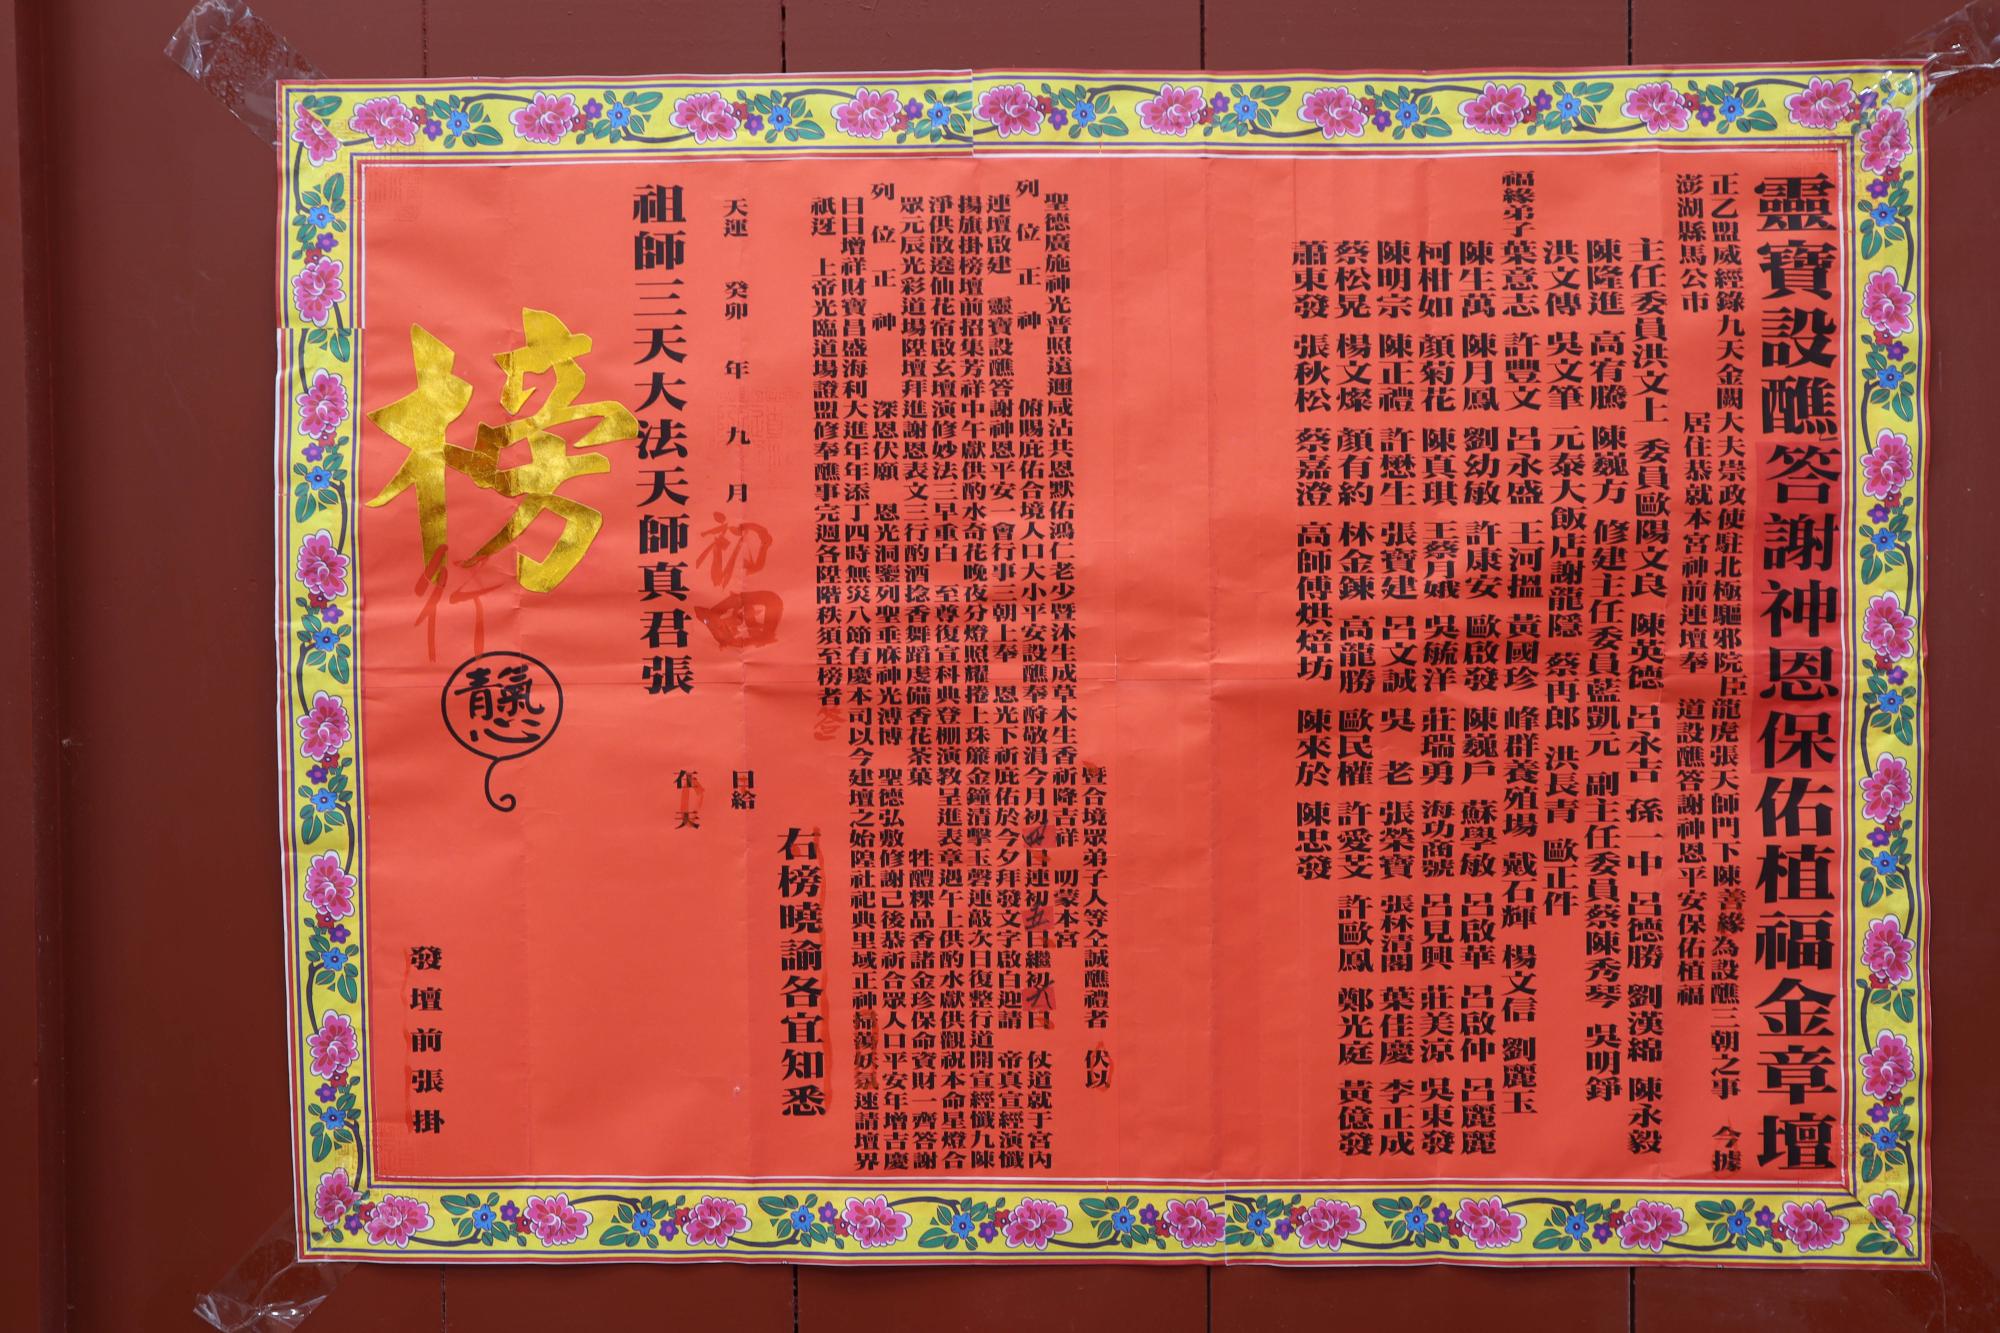 靈寶設醮答謝神恩保佑植福金章壇
正乙盟威經錄九天金闕大夫崇政使駐北極驅邪院臣龍虎張天師門下陳善緣為設醮三朝之事 今據
澎湖縣馬公市 居住恭就本宮神前連壇奉 道設醮答謝神恩平安保佑植福
主任委員洪文上 委員歐陽文良 陳英德 呂永吉 孫一中 呂德勝 劉漢綿 陳永毅
陳隆進 高宥騰 陳巍方 修建主任委員藍凱元 副主任委員蔡陳秀琴 吳明錚
洪文傳 吳文筆 元泰大飯店謝龍隱 蔡再郎 洪長青 歐正件
福緣弟子葉意志 許豐文 呂永盛 王河搵 黃國珍 峰群養殖場 戴石輝 楊文信 劉麗玉
陳生萬 陳月鳳 劉幼敏 許康安 歐啟發 陳巍戶 蘇學敏 呂啟華 呂啟仲 呂麗麗
柯柑如 顏菊花 陳真琪 王蔡月娥 吳毓洋 莊瑞勇 海功商號 呂見興 莊美涼 吳東發
陳明宗 陳正禮 許懋生 張寶建 呂文誠 吳 老 張榮寶 張林清閣 葉佳慶 李正成
蔡松晃 楊文燦 顏有約 林金鍊 高龍勝 歐民權 許愛艾 許歐鳳 鄭光庭 黃億發
蕭東發 張秋松 蔡嘉澄 高師傅烘焙坊 陳來於 陳忠發
暨合境眾弟子人等仝誠醮禮者 伏以
聖德廣施神光普照遠邇咸沾共恩默佑鴻仁老少暨沐生成草木生香祈降吉祥 叨蒙本宮
列位正神 俯賜庇佑合境人口大小平安設醮奉酧敬涓今月初四日連初五日繼初六日 仗道就于宮內
連壇啟建 靈寶設醮答謝神恩平安一會行事三朝上奉 恩光下祈庇佑於今夕拜發文字啟白迎請 帝真宣經演懺
揚旗掛榜壇前招集芳祥中午獻供酌水奇花晚夜分燈照耀捲上珠簾金鐘清擊玉磬連敲次日復整行道開宣經懺九陳
淨供散遶仙花宿啟玄壇演修妙法三早重白 至尊復宣科典登棚演教呈進表章過午上供酌水獻供觀祝本命星燈合
眾元辰光彩道場陞壇拜進謝恩表文三行酌酒捻香舞蹈虔備香花茶菓 牲醴粿品香諸金珍保命資財一齊答謝
列位正神 深恩伏願 恩光洞鑒列聖垂庥神光溥博 聖德弘敷修謝己後恭祈合眾人口平安年增吉慶
日日增祥財寶昌盛海利大進年年添丁四時無災八節有慶本司以今建壇之始隍社祀典里域正神掃蕩妖氛速請壇界
祇迓 上帝光臨道場證盟修奉醮事完週各陞階秩須至榜者
右榜曉諭各宜知悉
天運 癸卯 年 九 月 初四 日給
在 天
祖師三天大法天師真君張
榜
行
發壇前張掛